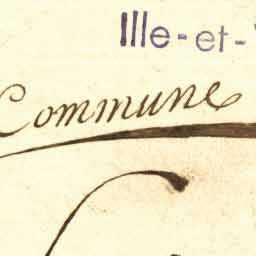 Ille-et-
Commune